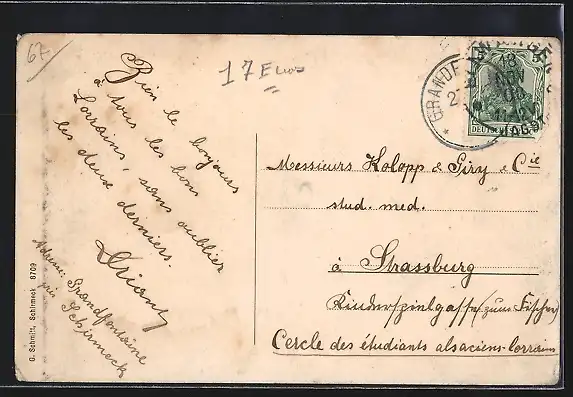 67
17 Euros
Bien le bonjours
à tous les bons
Lorrains, sans oublier
les deux derniers.
Adresse: Grandfontaine
près Schirmeck
G. Schmitt, Schirmeck 8709
GRANDF
DEUTSCHES
Messieurs Kolopp & Siry & Cie
stud. med.
à Strassburg
Kinderspielgasse (zum Fischer)
Cercle des étudiants alsaciens-lorrains